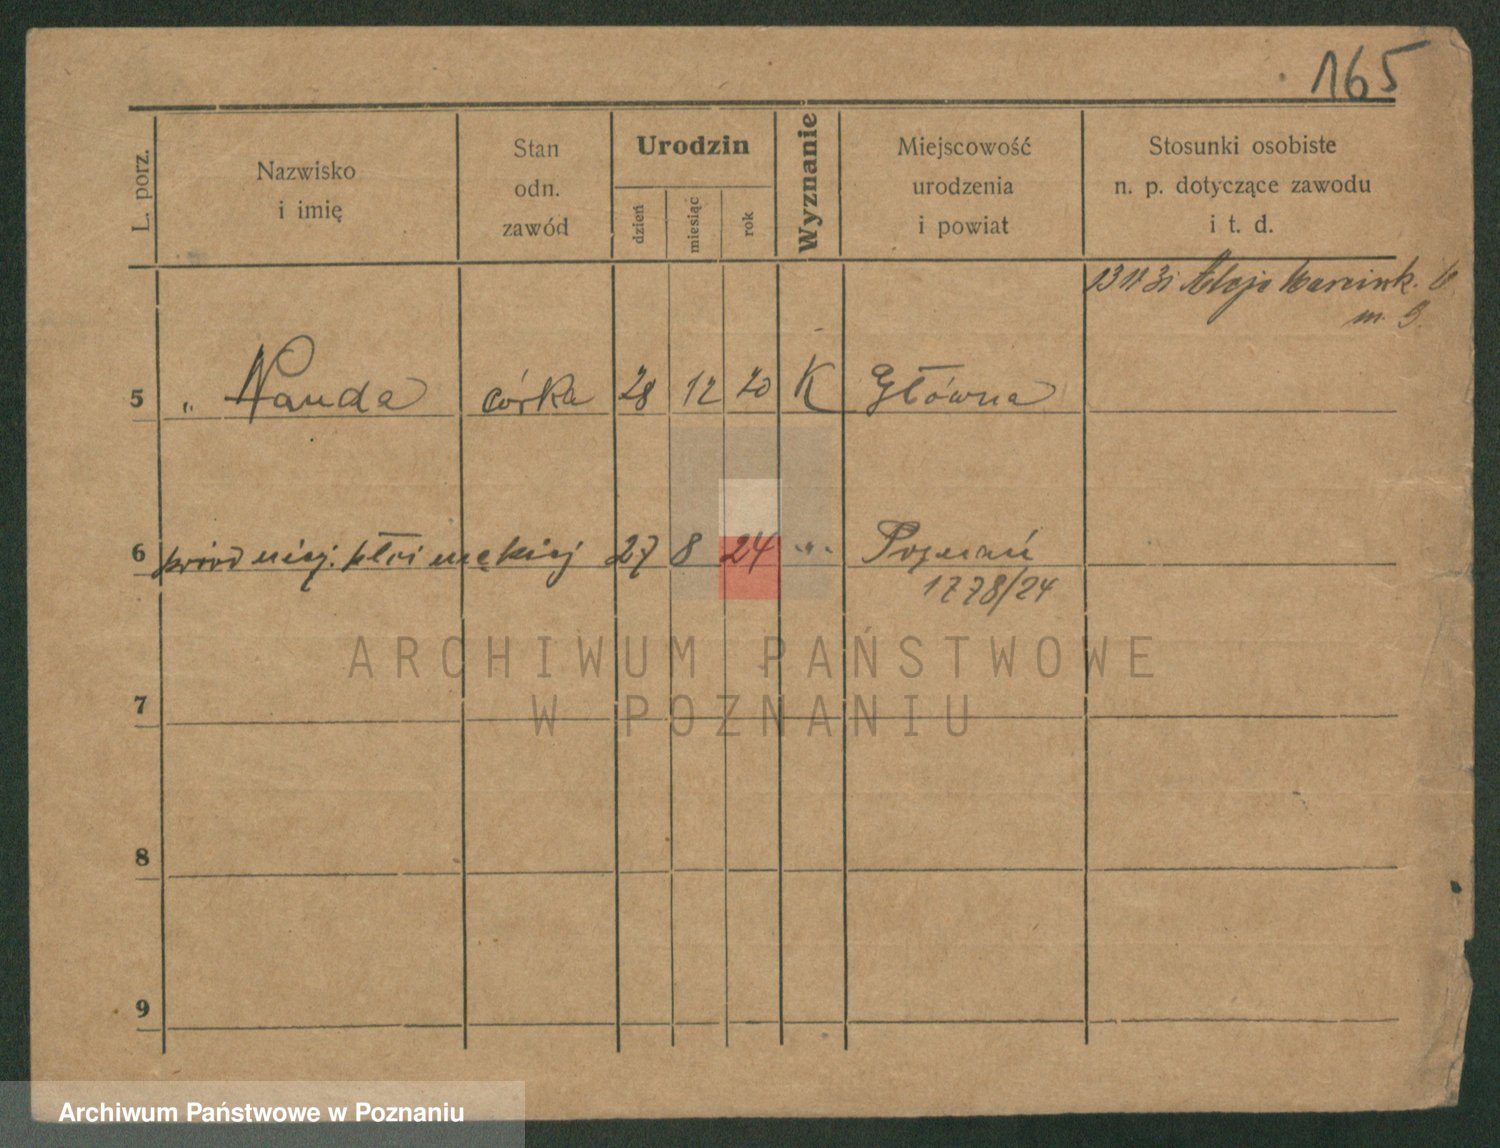 165
L. porz.
Nazwisko
i imię
Stan
odn.
zawód
Urodzin
dzień
miesiąc
rok
Wyznanie
Miejscowość
urodzenia
i powiat
Stosunki osobiste
n. p. dotyczące zawodu
i t. d.
Aleje Marcink.
m. 9.
5 " Wanda córka 28 12 20 K Główna
6 płci męskiej 27 8 24 " Poznań
1778/24
7
8
9
ARCHIWUM PAŃSTWOWE
W POZNANIU
Archiwum Państwowe w Poznaniu